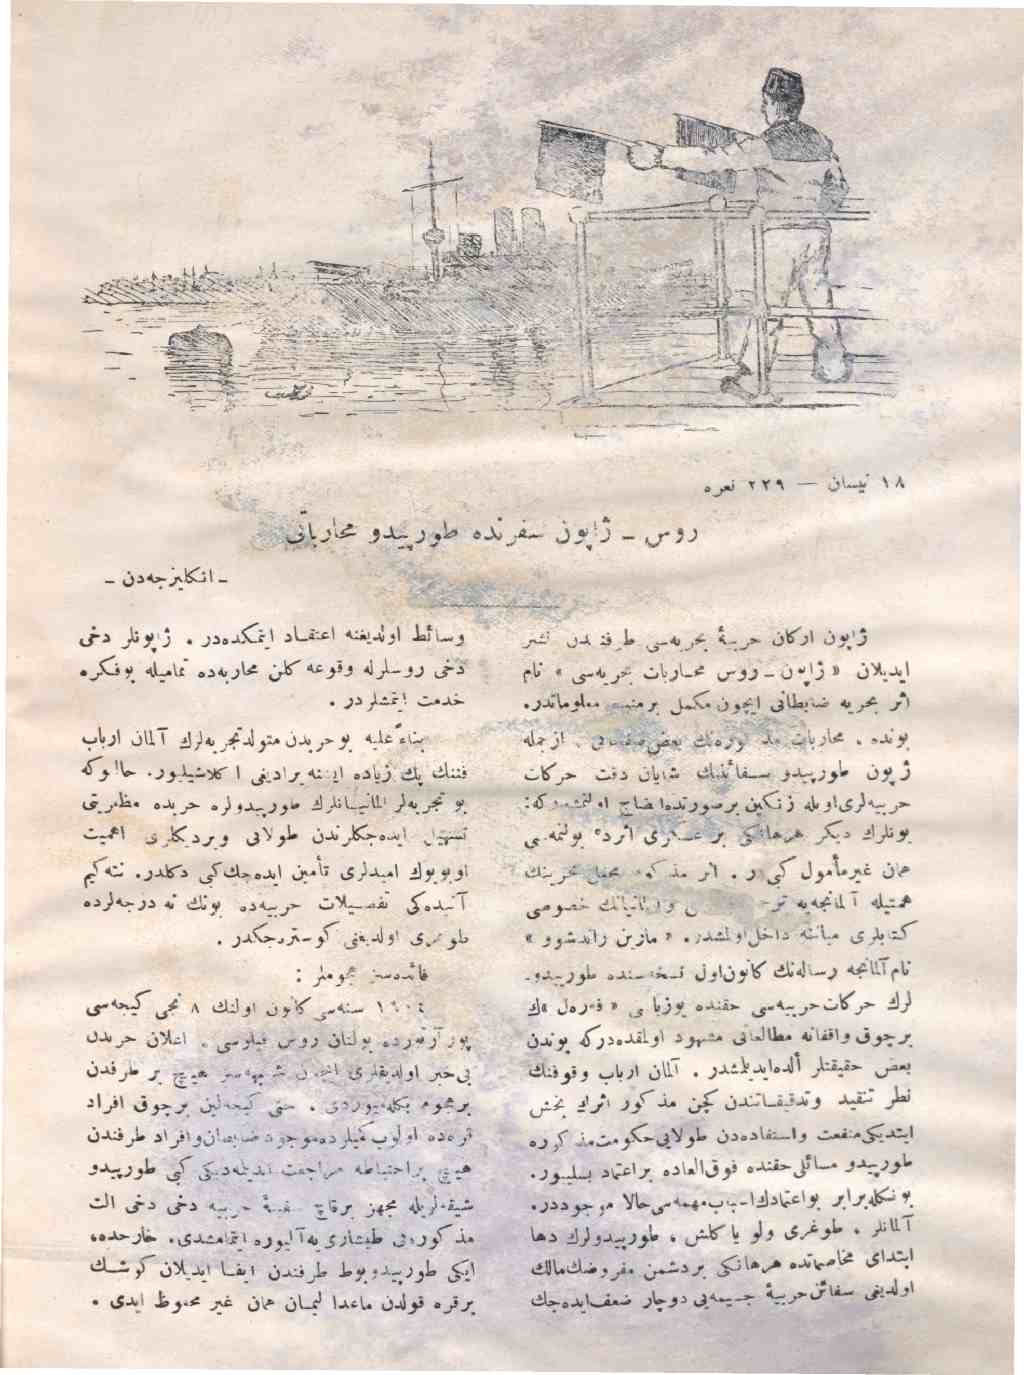 ١٨ نیسان — ٢٢٩ نمره
روس ـ ژاپون سفرنده طورپیدو محارباتی
ـ انکلیزجه‌دن ـ
ژاپون ارکان حربیهٔ بحریه‌سی طرفندن نشر
ایدیلان « ژاپون ـ روس محاربات بحریه‌سی » نام
اثر بحریه ضابطانی ایچون مکمل بر معلوماتدر.
بونده ، محاربات بعض ، ازجمله
ژاپون طورپیدو سفائننك شایان دقت حرکات
حربیه‌لری اویله رنکین بر صورتده ایضاح اولنمشدرکه :
بونلرك دیکر هرهانکی بر عسکری اثرده بولنمه‌سی
همان غیرمأمول کبیدر . اثر مذکور محفل بحرینك
همتیله آلمانجه‌یه و المانیانك خصوصی
کتابلری میاننه داخل اولمشدر. « مارین راندشوو »
نام آلمانجه رساله‌نك کانون‌اول نسخه‌سنده طورپیدو-
لرك حرکات حربیه‌سی حقنده یوزباشی « ك
برچوق واقفانه مطالعاتی مشهود اولمقده‌درکه بوندن
بعض حقیقتلر ألده‌ایدیلمشدر . آلمان ارباب وقوفنك
نظر تنقید وتدقیقاتندن کچن مذکور اثرك بخش
ایتدیکی منفعت واستفاده‌دن طولایی حکومت مذکوره
طورپیدو مسائلی حقنده فوق‌العاده براعتماد بسلیور.
بونکله‌برابر بواعتمادك اسباب مهمه‌سی حالا موجوددر.
آلمانلر ، طوغری ولو یا کلش ، طورپیدولرك دها
ابتدای مخاصماتده هرهانکی بردشمن مفروضك مالك
اولدیغی سفائن حربیهٔ جسیمه‌یی دوچار ضعف ایده‌جك
وسائط اولدیغنه اعتقاد ایتمکده‌در . ژاپونلر دخی
دخی روسلرله وقوعه کلن محاربه‌ده تمامیله بوفکره
خدمت ایتمشلردر .
بناءً علیه بوحربدن متولد تجربه‌لرك آلمان ارباب
فننك پك زیاده ایشنه یرادیغی اکلاشیلیور. حالبوکه
بو تجربه‌لر المانیالیلرك طورپیدولره حربده مظهریتی
تسهیل ایده‌جکلرندن طولایی ویردیکلری اهمیت
اوبویوك امیدلری تأمین ایده‌جك کبی دکلدر. نته‌کیم
آتیده‌کی تفصیلات حربیه‌ده بونك نه درجه‌لرده
طوغری اولدیغنی کوستره‌جکدر .
فائده‌سز هجوملر :
١٩٠٤ سنه‌سی کانون اولنك ٨ نجی کیجه‌سی
پورآرتورده بولنان روس فیلوسی ، اعلان حربدن
بی‌خبر اولدیقلری ایچون شبهه‌سز هیچ بر طرفدن
برهجوم بکله‌میوردی . حتی کیجه‌لین برچوق افراد
قره‌ده اولوب کمیلرده‌موجود ضابطان‌وافراد طرفندن
هیچ براحتیاطه مراجعت ایدیلمه‌دیکی کبی طورپیدو
شبقه‌لریله مجهز برقاچ سفینهٔ حربیه دخی دخی الت
مذکوره‌یی طیشاری‌یه آلیوره ایتمامشدی. خارجده،
ایکی طورپیدوبوط طرفندن ایفا ایدیلان کوشك
برقره قولدن ماعدا لیمان همان غیر محفوظ ایدی .